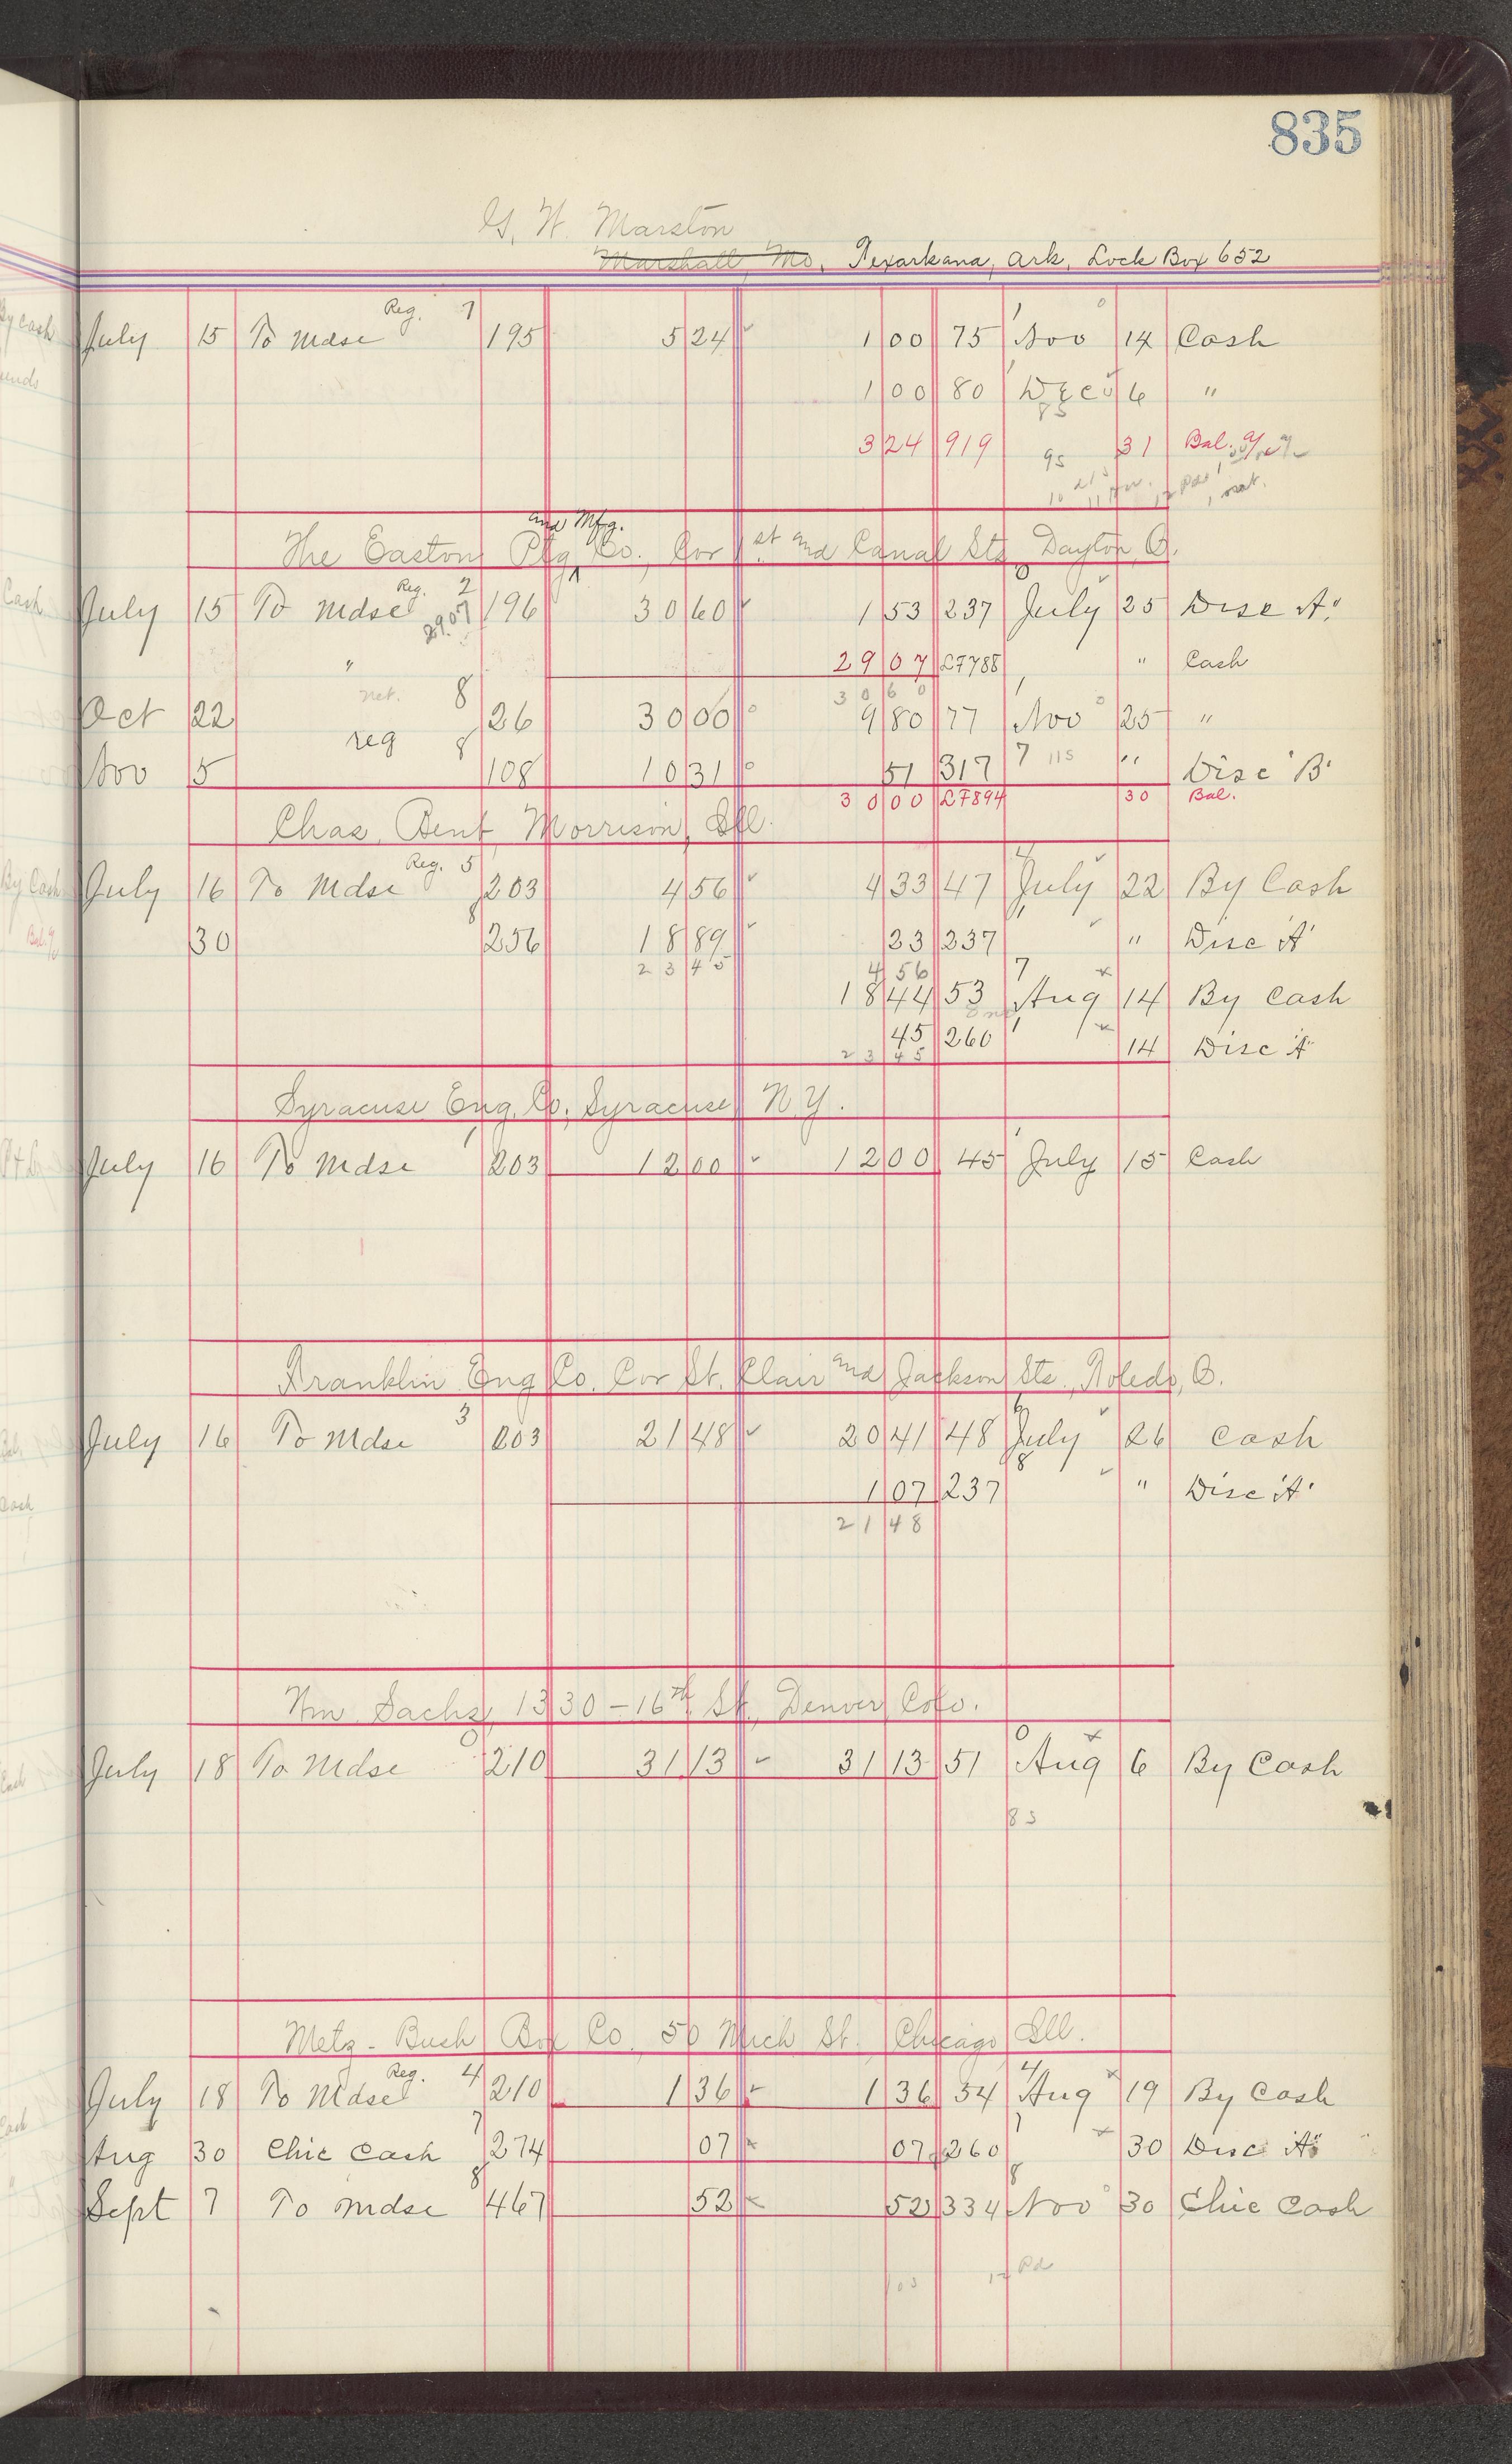 835
G. W. Marston
Marshall, Mo. Texarkana, Ark, Lock Box 652
Reg. 7
July 15 To Mdse 195 5 24 1 00 75 Nov 14 Cash
1 00 80 Dec 6 "
85
3 24 919 95 31 Bal.
and Mfg.
The Easton Ptg Co., Cor 1st and Canal Sts Dayton, O.
Reg. 2
July 15 To Mdse 2907 196 30 60 1 53 237 July 25 Disc "A"
" 29 07 LF788 " Cash
net. 8 30 60
Oct 22 26 30 00 9 80 77 Nov 25 "
reg 8
Nov 5 108 10 31 51 317 7 115 " Disc "B"
30 00 LF894 30 Bal.
Chas. Bent, Morrison, Ill.
Reg. 5
July 16 To Mdse 203 4 56 4 33 47 July 22 By Cash
30 256 18 89 23 237 " Disc "A"
23 45 4 56
18 44 53 Aug 14 By Cash
45 260 14 Disc "A"
23 45
Syracuse Eng. Co. Syracuse N.Y.
July 16 To Mdse 203 12 00 12 00 45 July 15 Cash
Franklin Eng Co. Cor St. Clair and Jackson Sts., Toledo, O.
3
July 16 To Mdse 203 21 48 20 41 48 July 26 Cash
1 07 237 " Disc "A"
21 48
Wm Sachs, 1330-16th St., Denver Colo.
0
July 18 To Mdse 210 31 13 31 13 51 Aug 6 By Cash
83
Metz-Bush Box Co. 50 Mich St. Chicago Ill.
Reg. 4
July 18 To Mdse 210 1 36 1 36 54 Aug 19 By Cash
7
Aug 30 Chic Cash 274 07 07 260 30 Disc "A"
8
Sept 7 To Mdse 467 52 52 334 Nov 30 Chic Cash
103 12 Pd